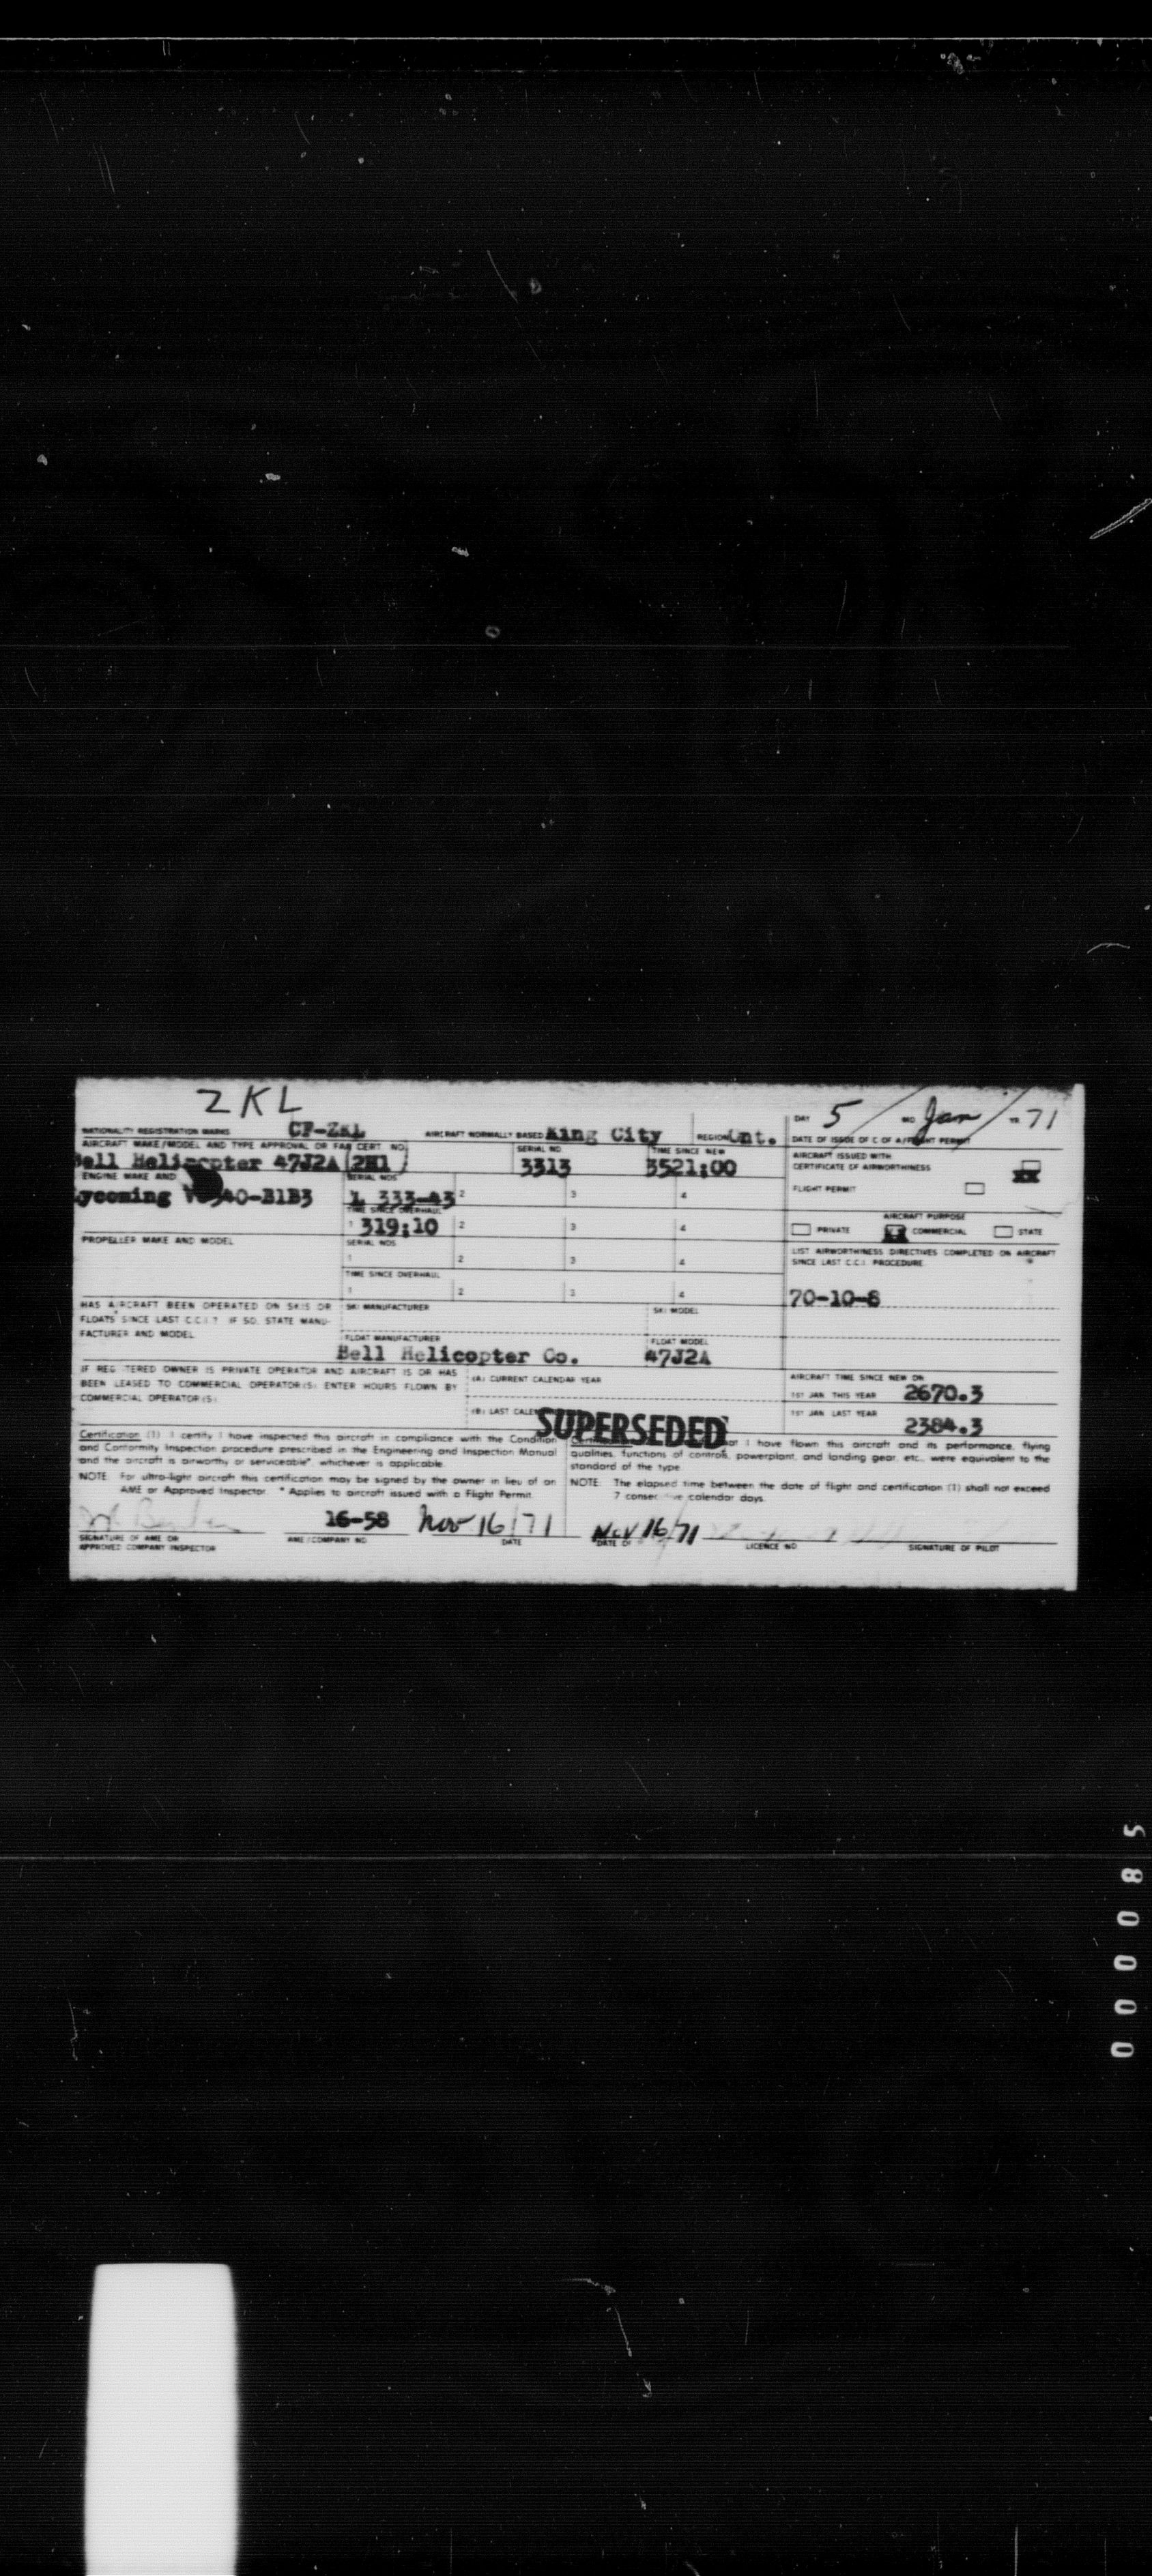 ZKL
DAY 5 MO Jan YR 71
NATIONALITY REGISTRATION MARKS CF-ZKL AIRCRAFT NORMALLY BASED King City REGION Ont. DATE OF ISSUE OF C OF A/FLIGHT PERMIT
AIRCRAFT MAKE/MODEL AND TYPE APPROVAL OR FAA CERT NO. SERIAL NO. TIME SINCE NEW
Bell Helicopter 47J2A (2H1) 3313 3521:00
AIRCRAFT ISSUED WITH
CERTIFICATE OF AIRWORTHINESS XX
FLIGHT PERMIT
ENGINE MAKE AND SERIAL NOS
Lycoming -B1B3 L 333-43 2 3 4
TIME SINCE OVERHAUL
1 319:10 2 3 4
AIRCRAFT PURPOSE
PRIVATE COMMERCIAL STATE
PROPELLER MAKE AND MODEL SERIAL NOS
1 2 3 4
TIME SINCE OVERHAUL
1 2 3 4
LIST AIRWORTHINESS DIRECTIVES COMPLETED ON AIRCRAFT
SINCE LAST C.C.I. PROCEDURE
70-10-8
HAS AIRCRAFT BEEN OPERATED ON SKIS OR
FLOATS SINCE LAST C.C.I.? IF SO, STATE MANU-
FACTURER AND MODEL
SKI MANUFACTURER SKI MODEL
FLOAT MANUFACTURER FLOAT MODEL
Bell Helicopter Co. 47J2A
IF REGISTERED OWNER IS PRIVATE OPERATOR AND AIRCRAFT IS OR HAS
BEEN LEASED TO COMMERCIAL OPERATOR(S) ENTER HOURS FLOWN BY
COMMERCIAL OPERATOR(S):
(A) CURRENT CALENDAR YEAR
(B) LAST CALEN
AIRCRAFT TIME SINCE NEW ON
1ST JAN THIS YEAR 2670.3
1ST JAN LAST YEAR 2384.3
SUPERSEDED
Certification (1) I certify I have inspected this aircraft in compliance with the Condition
and Conformity Inspection procedure prescribed in the Engineering and Inspection Manual
and the aircraft is airworthy or serviceable*, whichever is applicable.
NOTE: For ultra-light aircraft this certification may be signed by the owner in lieu of an
AME or Approved Inspector. * Applies to aircraft issued with a Flight Permit.
I have flown this aircraft and its performance, flying
qualities, functions of controls, powerplant, and landing gear, etc., were equivalent to the
standard of the type.
NOTE: The elapsed time between the date of flight and certification (1) shall not exceed
7 consecutive calendar days.
16-58 Nov 16/71 Nov 16/71
SIGNATURE OF AME OR
APPROVED COMPANY INSPECTOR
AME/COMPANY NO DATE DATE OF LICENCE NO SIGNATURE OF PILOT
000085